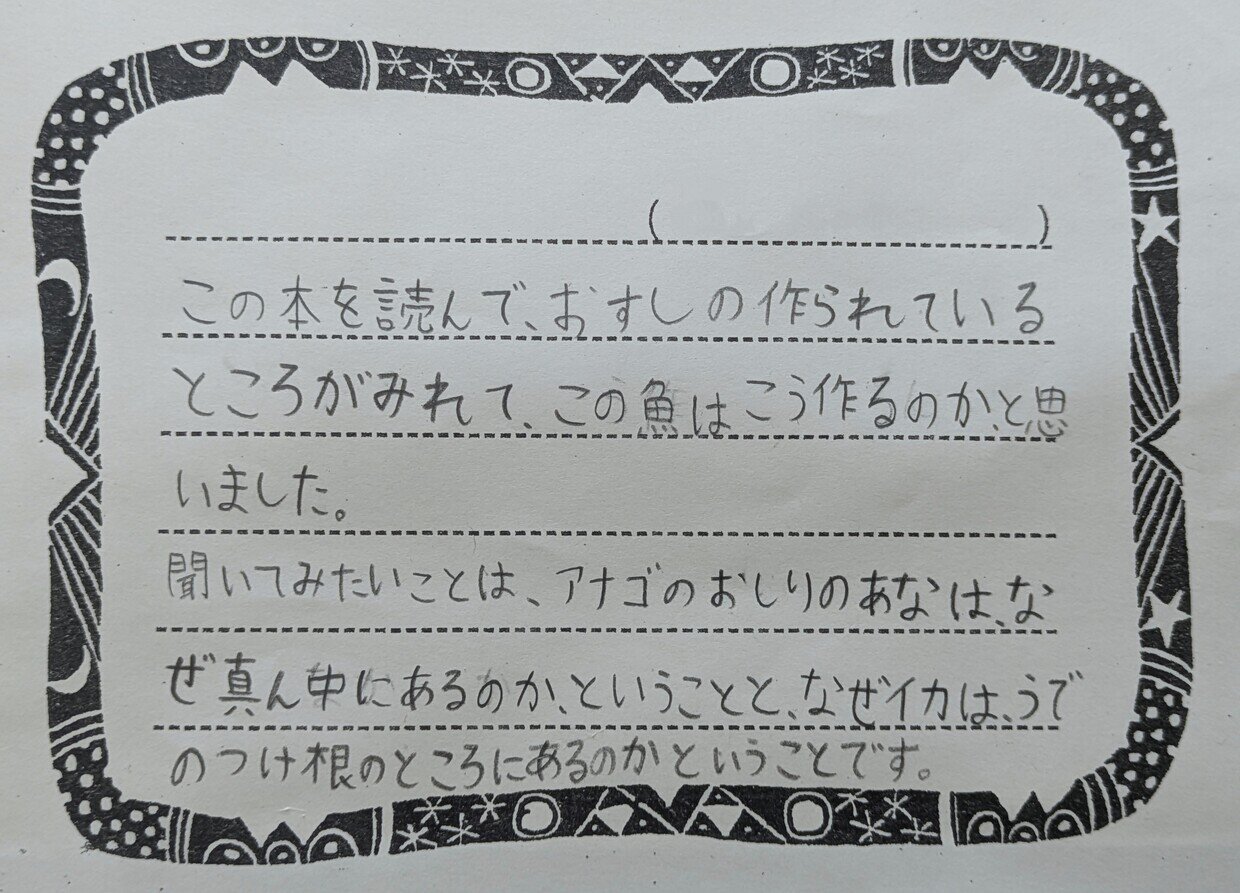 (　　　　　)
この本を読んで、おすしの作られている
ところがみれて、この魚はこう作るのか、と思
いました。
聞いてみたいことは、アナゴのおしりのあなは、な
ぜ真ん中にあるのか、ということと、なぜイカは、うで
のつけ根のところにあるのかということです。